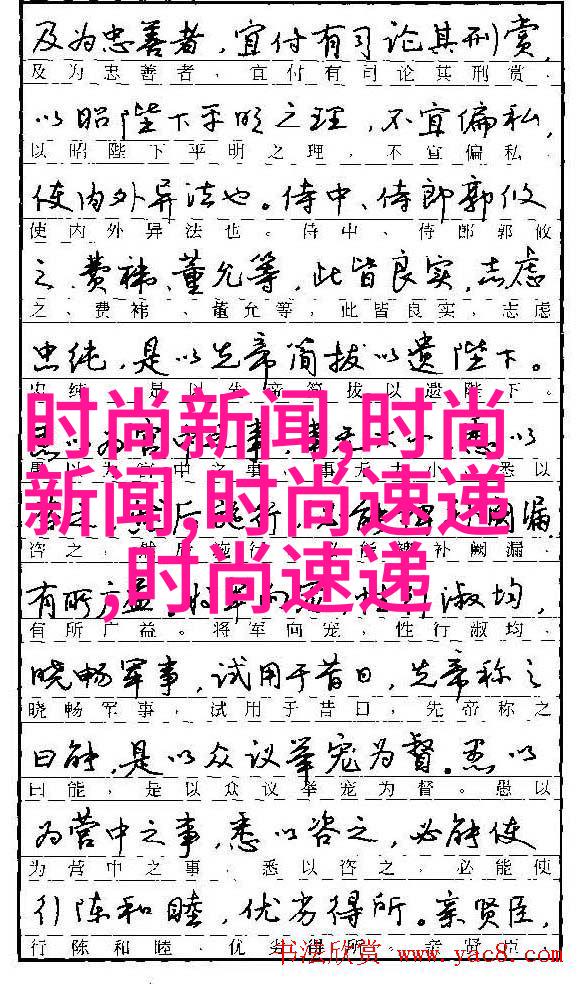 及为忠善者，宜付有司论其刑赏，
及为忠善者，宜付有司论其刑赏，
以昭陛下平明之理，不宜偏私，
以昭陛下平明之理，不宜偏私，
使内外异法也。侍中、侍郎郭攸
使内外异法也。侍中、侍郎郭攸
之、费袆、董允等，此皆良实，志虑
之、费袆、董允等，此皆良实，志虑
忠纯，是以先帝简拔以遗陛下。
忠纯，是以先帝简拔以遗陛下。
时尚新闻,时尚
新闻,时尚速递
,时尚速递
悉以
愚以为宫中之事，事无大小，悉以
漏
咨之，补阙漏，
有所广益。淑均，
有所广益。将军向宠，性行淑均，
晓畅军事，试用于昔日，先帝称之
晓畅军事，试用于昔日，先帝称之
曰能，是以众议举宠为督。愚以
曰能，是以众议举宠为督。愚以
为营中之事，悉以咨之，必能使
为营中之事，悉以咨之，必能使
行陈和睦，优劣得所。亲贤臣，
行陈和睦，优劣得所。亲贤臣，
书法欣赏 www.yac8.com